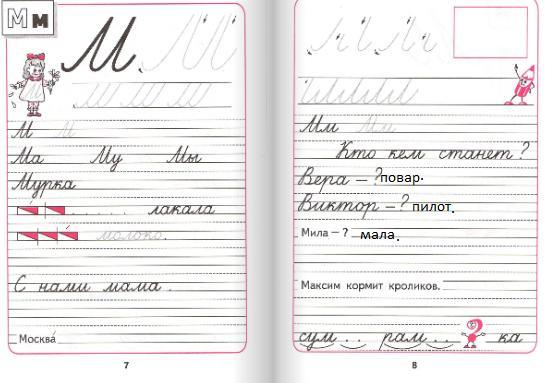 Мм
М М М
М М М
М М
Ма Му Мы
Мурка
лакала
молоко.
С нами мама.
Москва́
7
Мм Мм
Кто кем станет?
Вера – ? повар.
Виктор – ? пилот.
Мила – ? мала.
Максим кормит кроликов.
сум . . рам . . ? ка
8